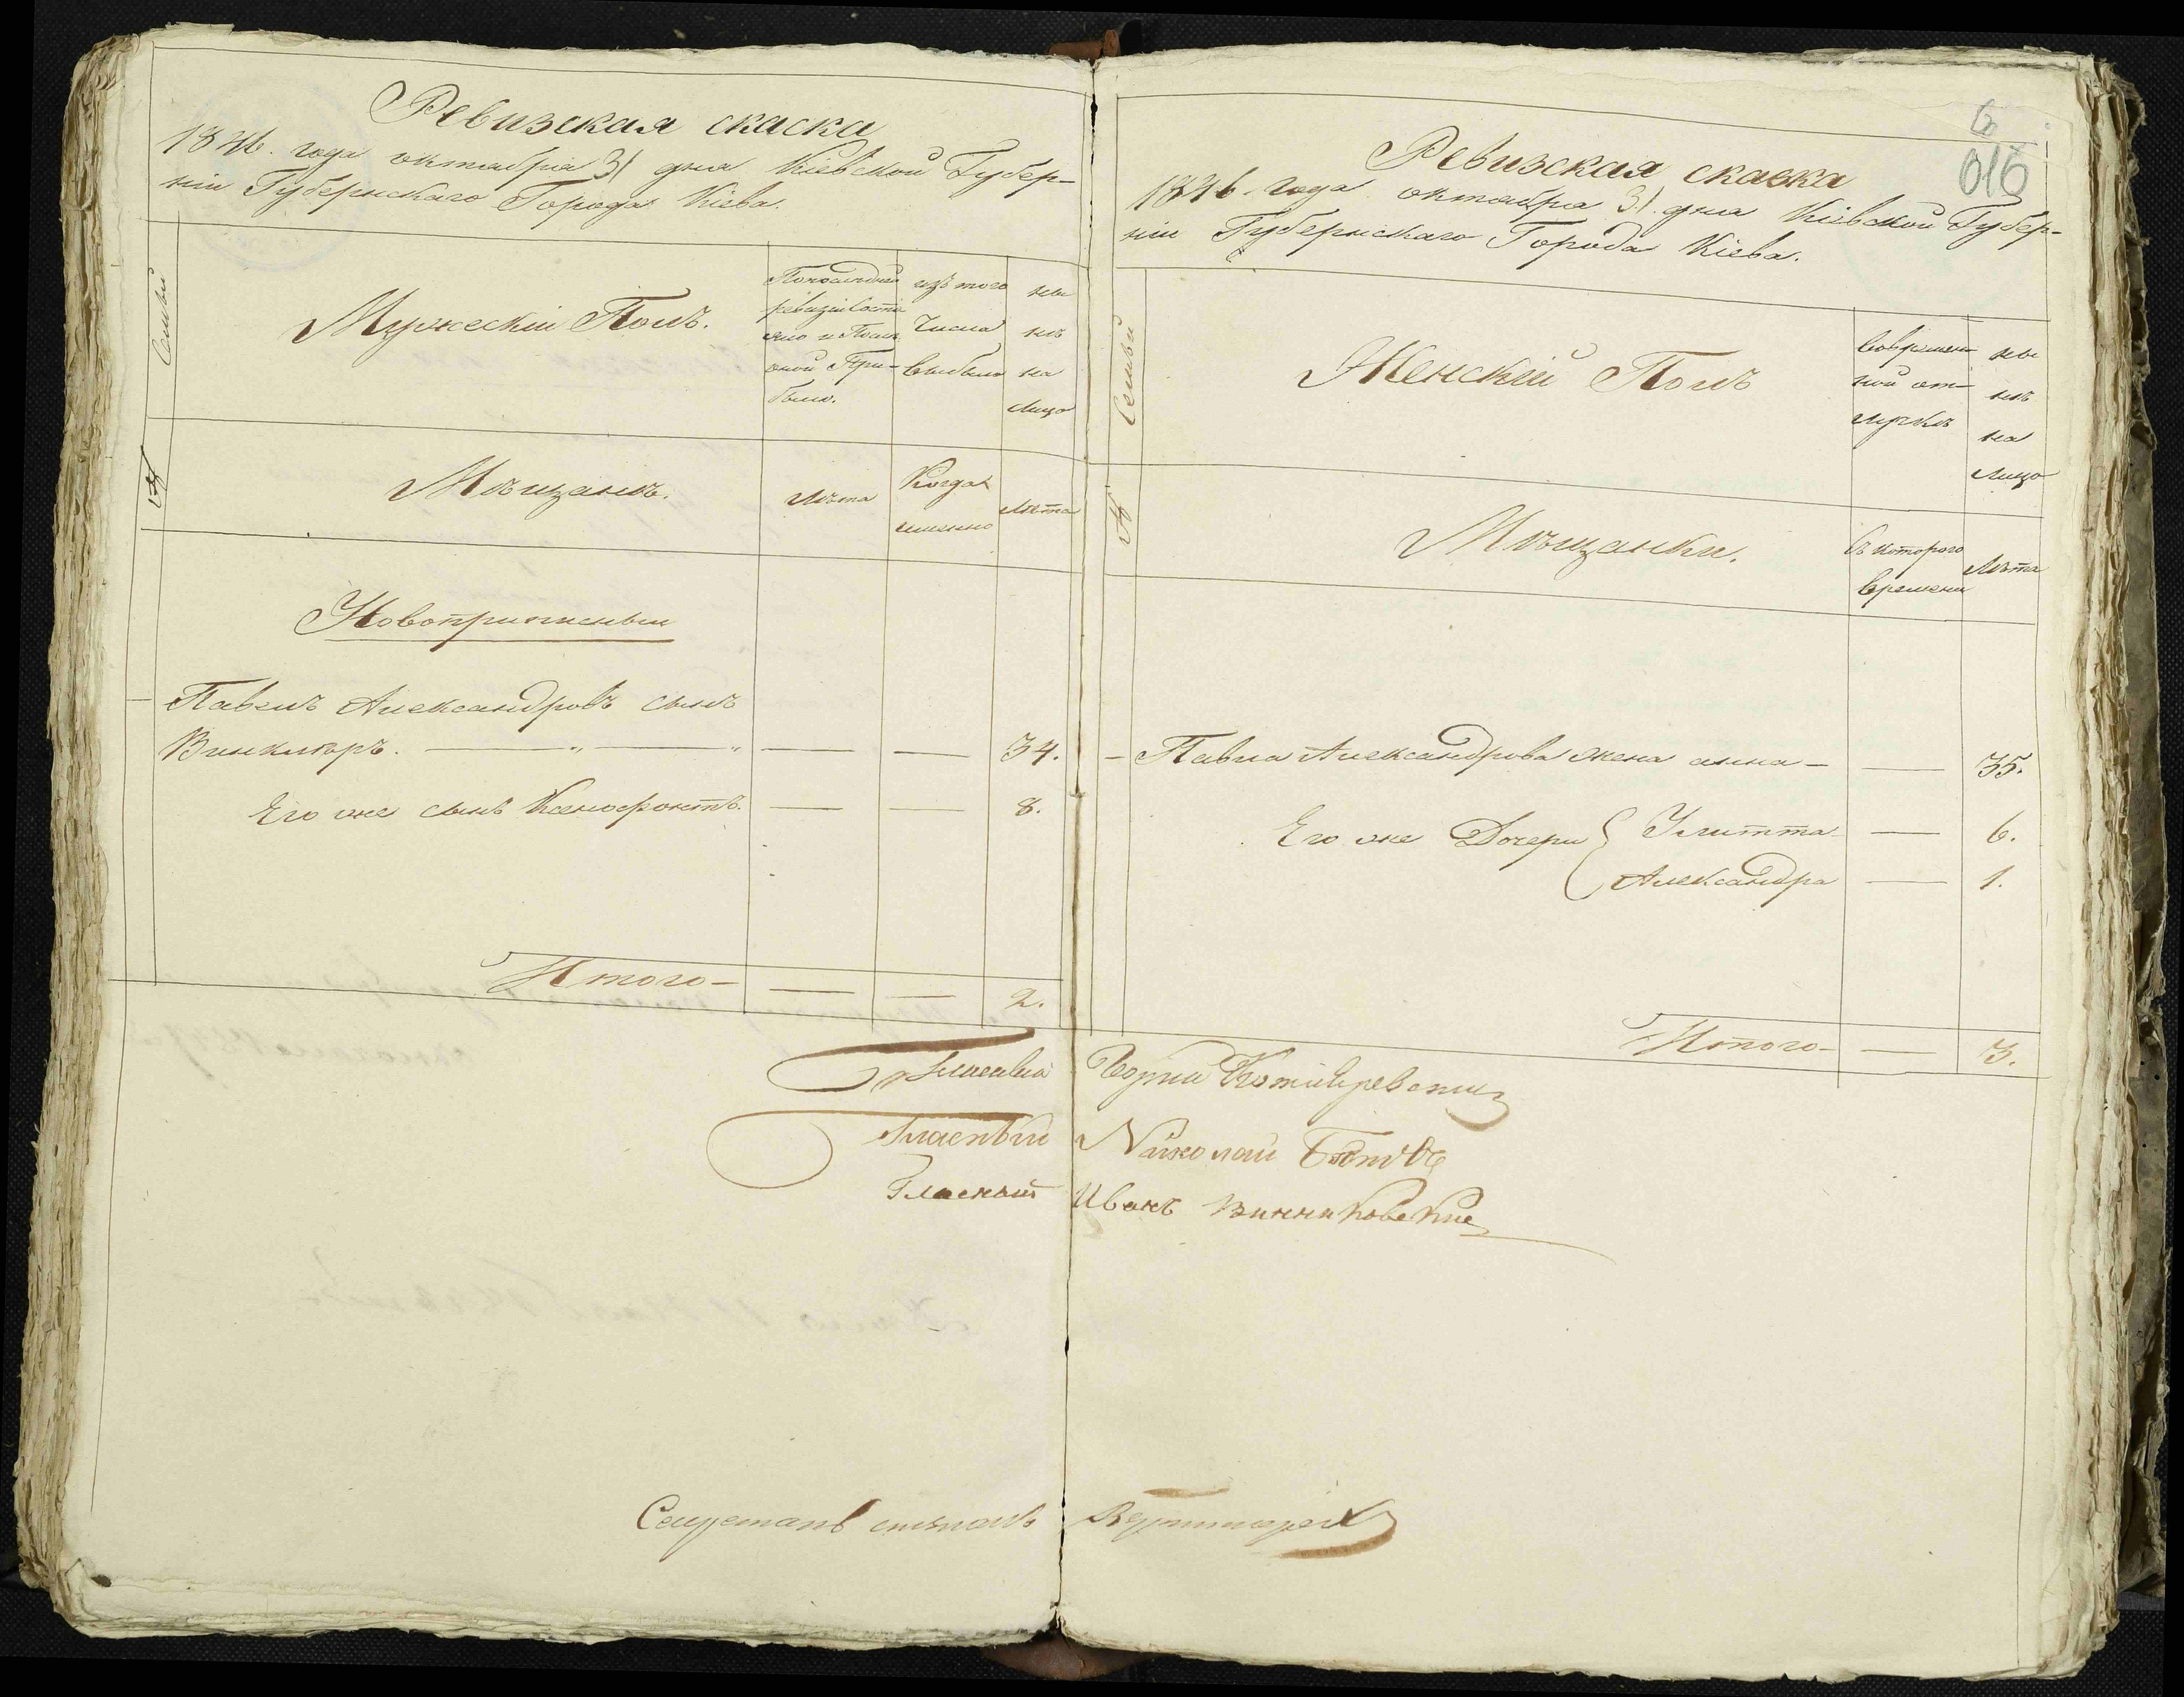 Ревизская скаска
1846. года октабря 31 дня Кіевской Губер-
ніи Губернскаго Города Кіева.
Семьи
Мужескій Полъ.
По последней
ревизіи Состо
яло и После
оной При-
было.
изъ того
Числа
выбыло
ны
нѣ
на
лицо
№
Мѣщанъ.
Лѣта
Когда
именно
Лѣта
Новоприписныи
Павелъ Александровъ сынъ
Винклюръ. — „ — „ — — 34.
Его же сынъ Ксенофонтъ. — — 8.
Итого — — — 2.
6
016
Ревизская скаска
1846. года октабря 31. дня Кіевской Губер-
ніи Губернскаго Города Кіева.
Семьи
Женскій Полъ
Вовремен
ной от-
лучкѣ
ны
нѣ
на
Лицо
№
Мѣщанки.
Съ которого
времени
Лѣта
Павла Александрова жена анна — — 35.
Его же Дочери Улитта — 6.
Александра — 1.
Итого — — 3.
Гласный
Гласный Николай
Гласный Иванъ
Секретарь